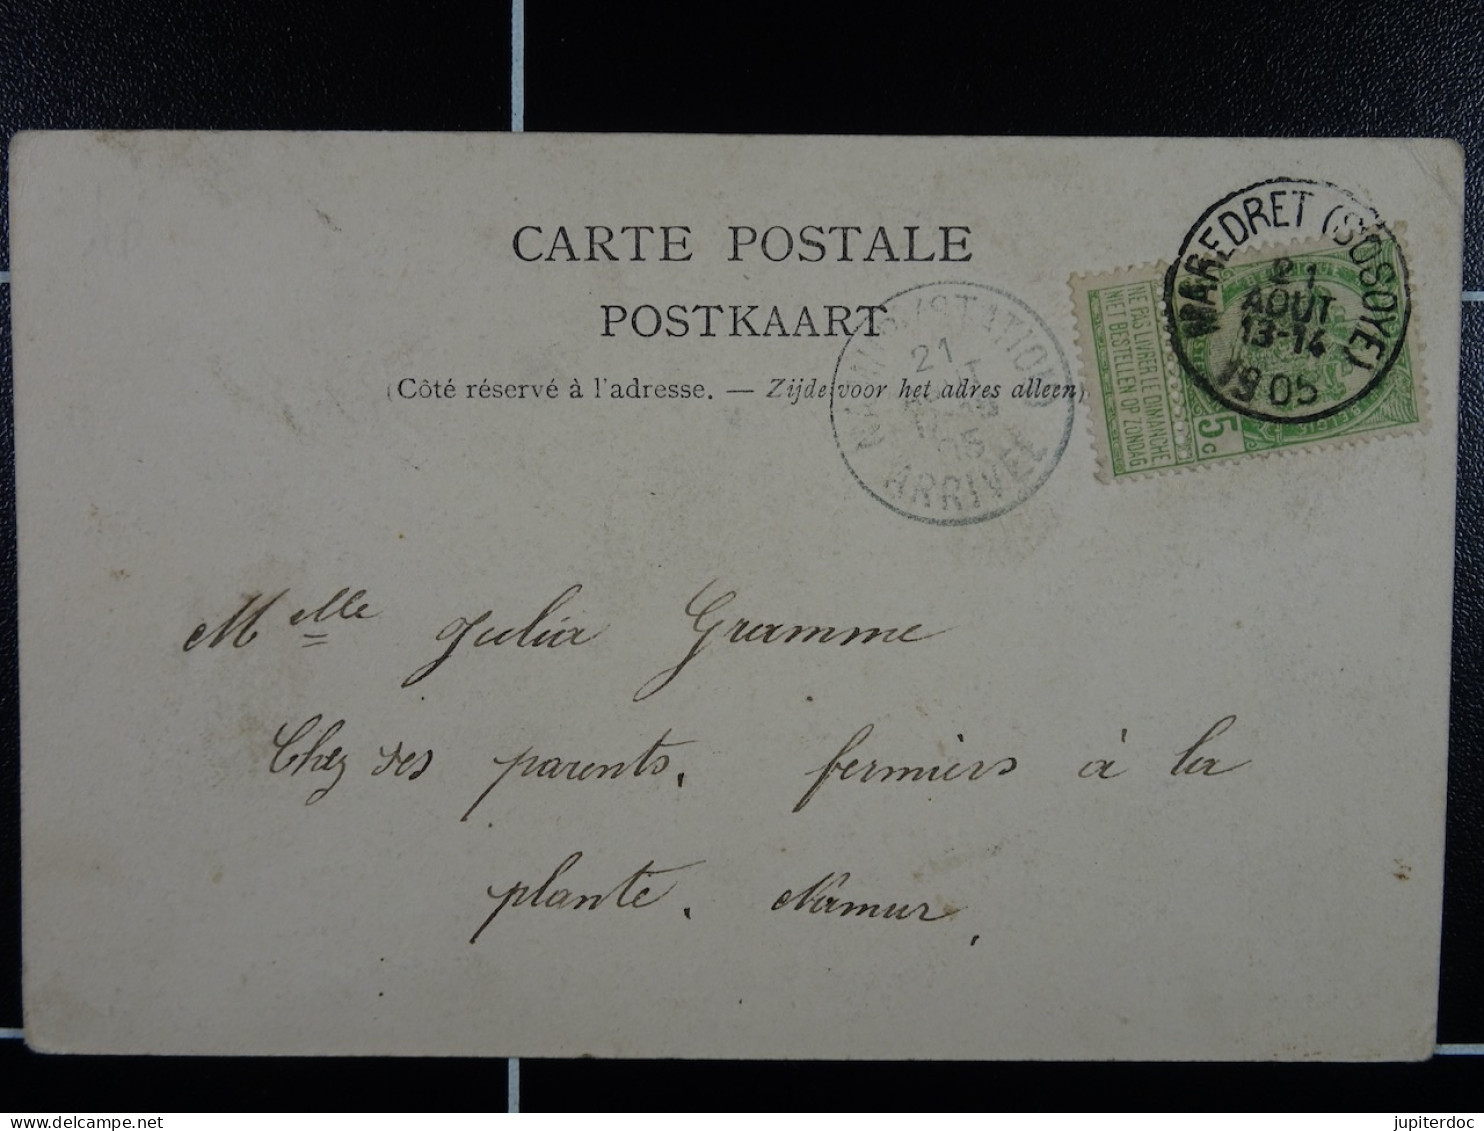 CARTE POSTALE
POSTKAART
(Côté réservé à l'adresse. — Zijde voor het adres alleen)
MAREDRET (SOSOYE)
21
AOUT
13-14
1905
(STATION)
21
05
ARRIVEE
NE PAS LIVRER LE DIMANCHE
NIET BESTELLEN OP ZONDAG
BELGIQUE
5c
Mlle Julia Gramme
Chez ses parents, fermiers à la
plante. Namur.
delcampe.net
jupiterdoc